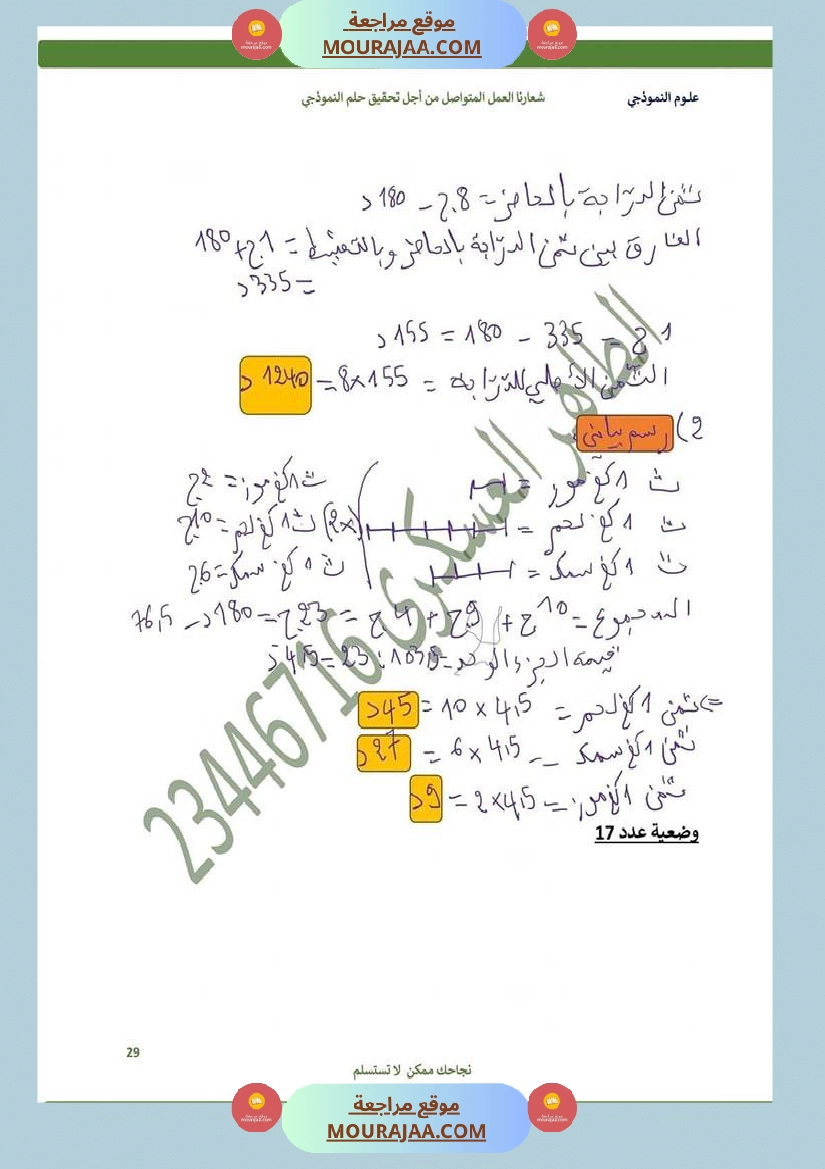 موقع مراجعة
MOURAJAA.COM
علوم النموذجي
شعارنا العمل المتواصل من أجل تحقيق حلم النموذجي
ثمن الدرّاجة بالحاضر = 8ج - 180د
الفارق بين ثمن الدرّاجة بالحاضر وبالتقسيط = 1ج + 180
= 335د
1ج = 335 - 180 = 155د
الثمن الأصلي للدرّاجة = 155×8 = 1240د
2) رسم بياني
ث 1كغ موز =
ث 1كغ موز = 2ج
ث 1كغ لحم =
(2×)
ث 1كغ لحم = 10ج
ث 1كغ سمك =
ث 1كغ سمك = 6ج
المجموع = 10ج + 9ج + 4ج = 23ج = 180د - 76,5
قيمة الجزء الواحد = 103,5 : 23 = 4,5د
=> ثمن 1كغ لحم = 4,5 × 10 = 45د
ثمن 1كغ سمك = 4,5 × 6 = 27د
ثمن 1كغ موز = 4,5×2 = 9د
وضعية عدد 17
الطاهر العسكري 23446716
29
نجاحك ممكن لا تستسلم
موقع مراجعة
MOURAJAA.COM